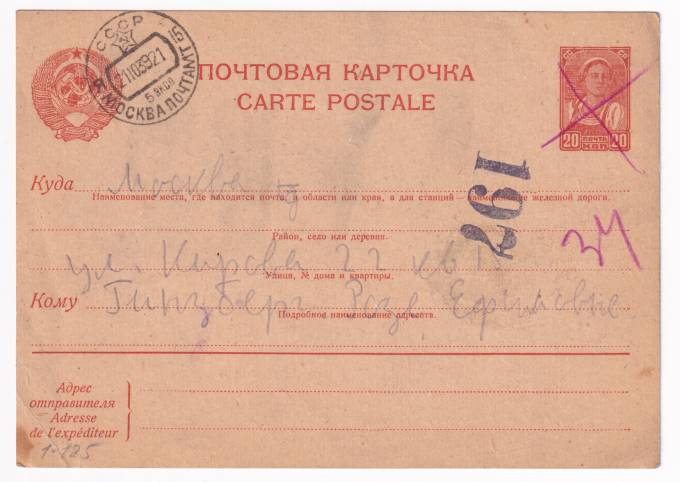 СССР
11039 21
МОСКВА ПОЧТАМТ
ПОЧТОВАЯ КАРТОЧКА
CARTE POSTALE
20 ПОЧТА 20
КОП
197
Куда Москва
Наименование места, где находится почта, и области или края, а для станций — наименование железной дороги.
Район, село или деревня.
34
ул. Кирова 22 кв 1
Улица, № дома и квартиры.
Кому Гинзберг Розе Ефимовне
Подробное наименование адресата.
Адрес
отправителя
Adresse
de l'expéditeur
1-125